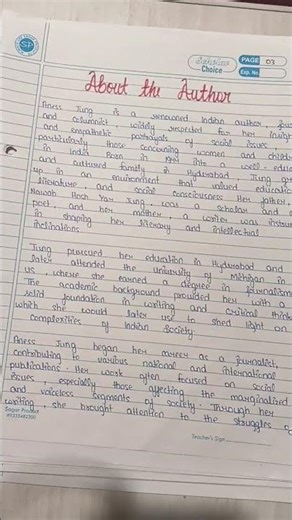 SP
Choice
PAGE 03
Exp. No.
About the Author
Aness Jung is a renowned Indian author, jour
and columnist, widely respected for her insigh
and empathetic portrayals of social issues,
particularly those concerning women and childr
in India. Born in 1944 into a well-educ
and cultured family in Hyderabad Jung gr
up in an environment that valued educatio
literature, and social consciousness. Her father,
Nawab Hosh Yar Jung, was a scholar and a
poet, and her mother, a writer was instrum
in shaping her literary and intellectual
inclinations.
Jung pursued her education in Hyderabad and
later attended the University of Michigan in
US, where she earned a degree in journalism
The academic background provided her with a
solid foundation in writing and critical think
which she would later use to shed light on
complexities of Indian Society.
Aness Jung began her career as a journalist,
contributing to various national and international
publications. Her work often focused on social
issues, especially those affecting the marginalized
and voiceless segments of society. Through her
writing, she brought attention to the struggles o
Sagar Product
Teacher's Sign